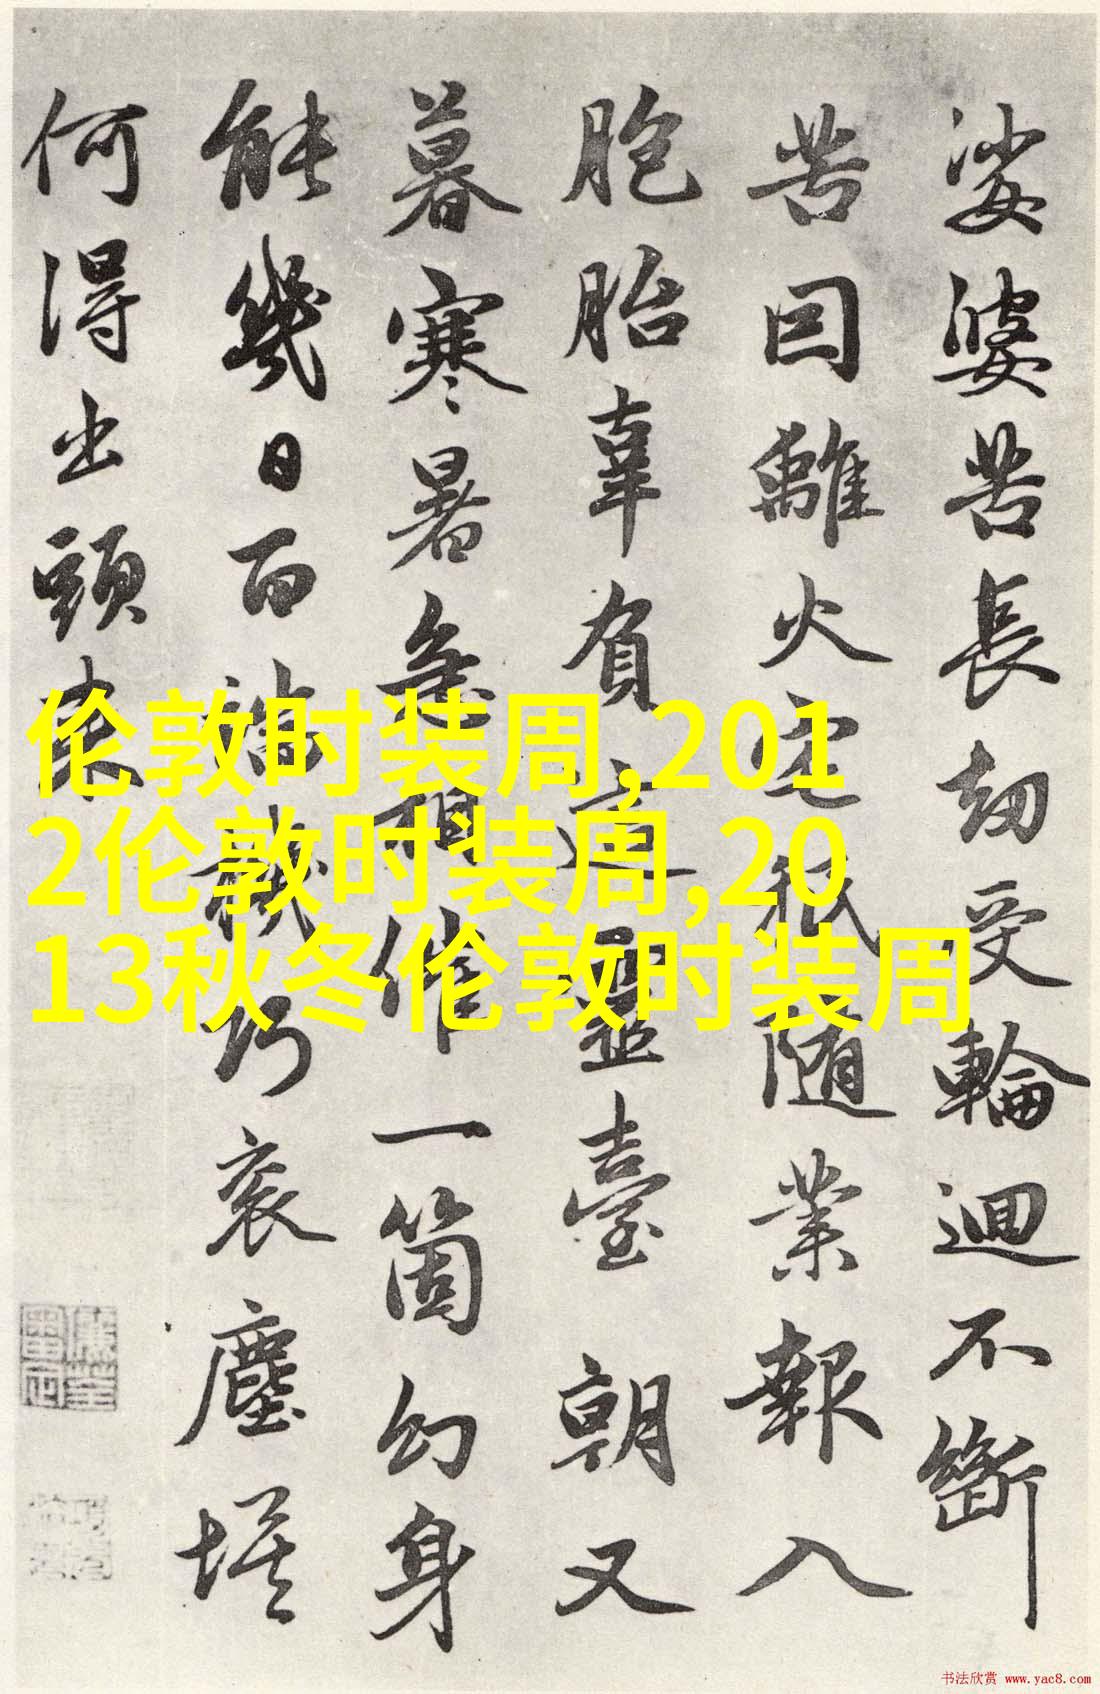 娑婆苦長劫受輪迴不斷
苦因離火宅秖随業報入
胞胎辜負這靈臺朝又
暮寒暑急相催一箇幻身
能幾日百端機巧衮塵埃
何得出頭来
伦敦时装周,201
2伦敦时装周,20
13秋冬伦敦时装周
书法欣赏 www.yac8.com